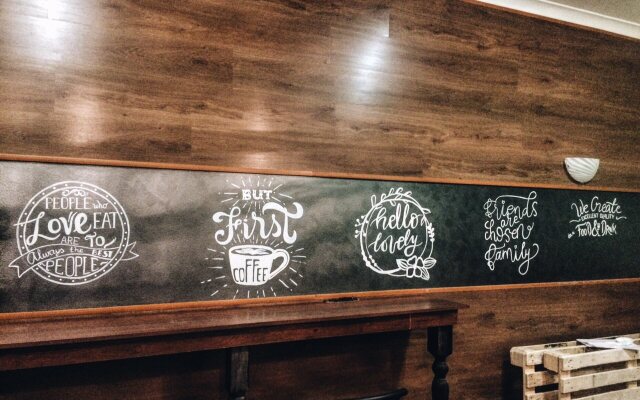 PEOPLE who
Love EAT
ARE TO
Always the BEST
PEOPLE
BUT
First
COFFEE
hello
lovely
friends
are
chosen
family
We Create
EXCELLENT QUALITY
FOOD & DRINK